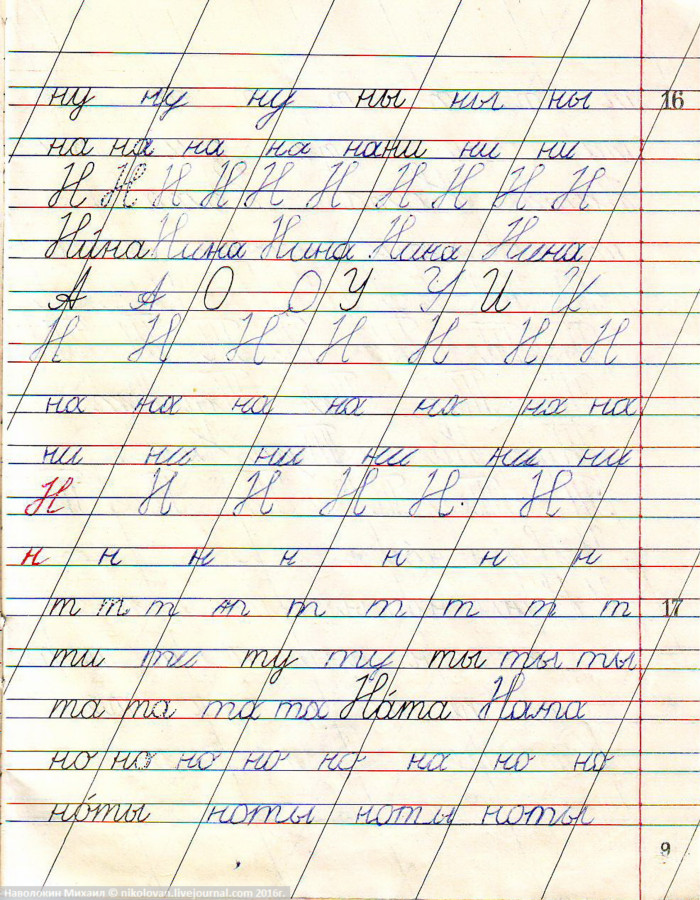 ну ну ну ны ны ны 16
на на на на нани ни ни
Н Н Н Н Н Н Н Н Н Н
Ни́на Нина Нина Нина Нина
А А О О У У И И
Н Н Н Н Н Н Н
на на на на на на на
ни ни ни ни ни ни
Н Н Н Н Н Н
н н н н н н н
т т т т т т т т т 17
ти ти ту ту ты ты ты
та та та та На́та Ната
но но но но но на но но
но́ты ноты ноты ноты
9
Наволокин Михаил © nikolovau.livejournal.com 2016г.